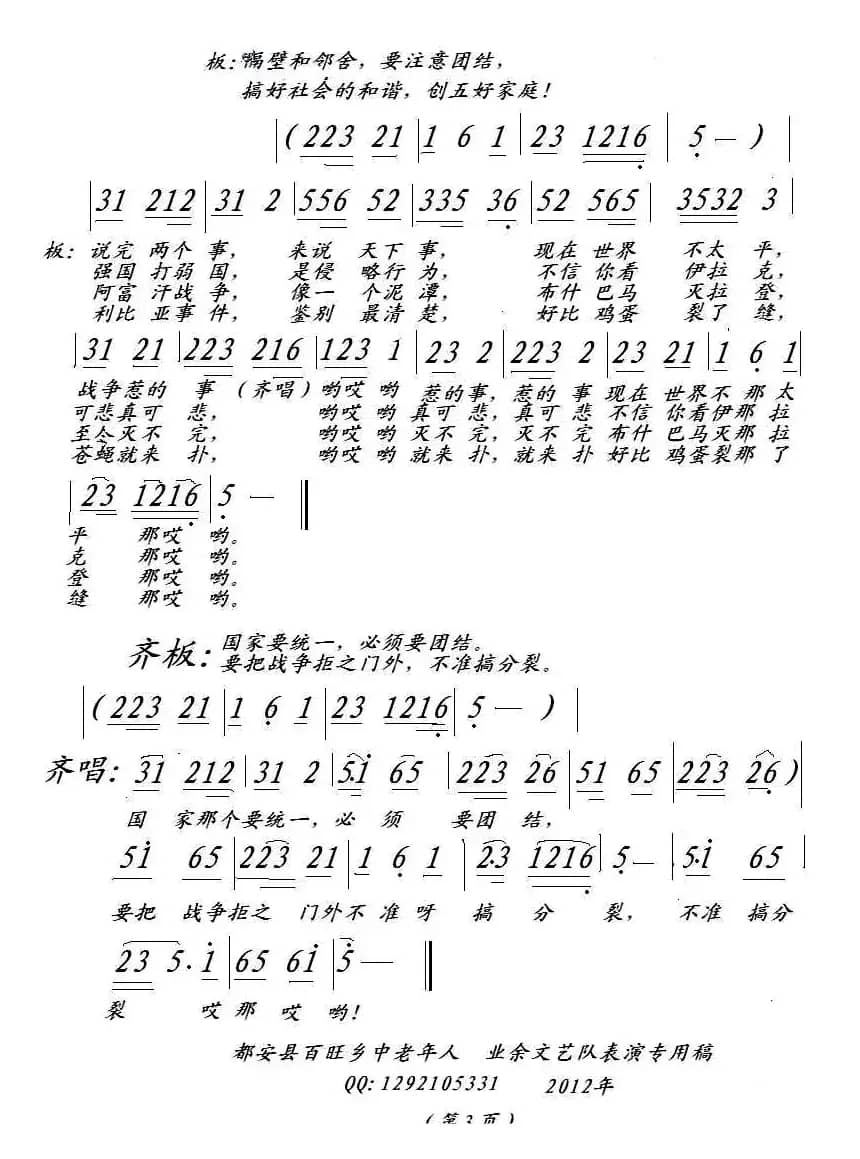 板:"隔壁和邻舍，要注意团结，
搞好社会的和谐，创五好家庭！
(223 21 | 1 6 1 | 23 1216 | 5 — )
31 212 | 31 2 | 556 52 | 335 36 | 52 565 | 3532 3
板：说完 两个 事， 来说 天下 事， 现在 世界 不太 平，
强国 打弱 国， 是侵 略行 为， 不信 你看 伊拉 克，
阿富 汗战 争， 像一 个泥 潭， 布什 巴马 灭拉 登，
利比 亚事 件， 鉴别 最清 楚， 好比 鸡蛋 裂了 缝，
31 21 | 223 216 | 123 1 | 23 2 | 223 2 | 23 21 | 1 6 1
战争惹的 事 (齐唱) 哟哎 哟 惹的事，惹的 事 现在 世界不 那 太
可悲真可 悲， 哟哎 哟 真可 悲，真可 悲 不信 你看伊那 拉
至今灭不 完， 哟哎 哟 灭不 完，灭不 完 布什 巴马灭那 拉
苍蝇就来 扑， 哟哎 哟 就来 扑，就来 扑 好比 鸡蛋裂那 了
23 1216 | 5 —
平 那哎 哟。
克 那哎 哟。
登 那哎 哟。
缝 那哎 哟。
齐板：国家要统一，必须要团结。
要把战争拒之门外，不准搞分裂。
(223 21 | 1 6 1 | 23 1216 | 5 — )
齐唱：31 212 | 31 2 | 5.1 65 | 223 26 | 51 65 | 223 26 )
国 家那个要统一，必 须 要团 结，
51 65 | 223 21 | 1 6 1 | 2.3 1216 | 5 — | 5.1 65
要把 战争拒之 门外不 准 呀 搞 分 裂， 不准 搞分
23 5. 1 | 65 61 | 5 —
裂 哎 那 哎 哟！
都安县百旺乡中老年人 业余文艺队表演专用稿
QQ: 1292105331 2012年
(第3页)